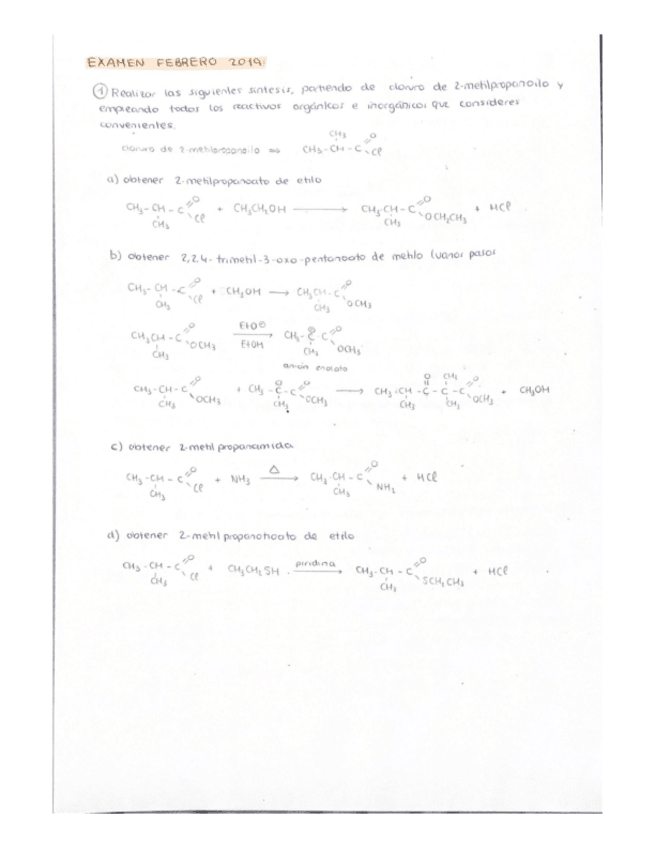 EXAMEN FEBRERO 2019:
① Realizar las siguientes sintesis, partiendo de cloruro de 2-metilpropanoilo y
empleando todos los reactivos orgánicos e inorgánicos que consideres
convenientes.
cloruro de 2-metilpropanoilo ⇒ CH₃-CH(CH₃)-C(=O)Cl
a) obtener 2-metilpropanoato de etilo
CH₃-CH(CH₃)-C(=O)Cl + CH₃CH₂OH ⟶ CH₃-CH(CH₃)-C(=O)OCH₂CH₃ + HCl
b) obtener 2,2,4-trimetil-3-oxo-pentanoato de metilo (varios pasos
CH₃-CH(CH₃)-C(=O)Cl + CH₃OH ⟶ CH₃CH(CH₃)-C(=O)OCH₃
CH₃CH(CH₃)-C(=O)OCH₃ EtO⊖ EtOH ⟶ CH₃-C⊖(CH₃)-C(=O)OCH₃
anión enolato
CH₃-CH(CH₃)-C(=O)OCH₃ + CH₃-C⊖(CH₃)-C(=O)OCH₃ ⟶ CH₃-CH(CH₃)-C(=O)-C(CH₃)(CH₃)-C(=O)OCH₃ + CH₃OH
c) obtener 2-metil propanamida
CH₃-CH(CH₃)-C(=O)Cl + NH₃ Δ ⟶ CH₃-CH(CH₃)-C(=O)NH₂ + HCl
d) obtener 2-metil propanotioato de etilo
CH₃-CH(CH₃)-C(=O)Cl + CH₃CH₂SH piridina ⟶ CH₃-CH(CH₃)-C(=O)SCH₂CH₃ + HCl